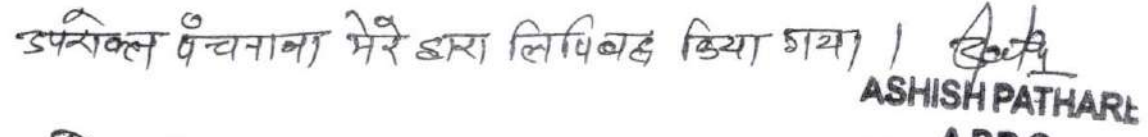 उपरोक्त पंचनामा मेरे द्वारा लिपिबद्ध किया गया।
ASHISH PATHARE